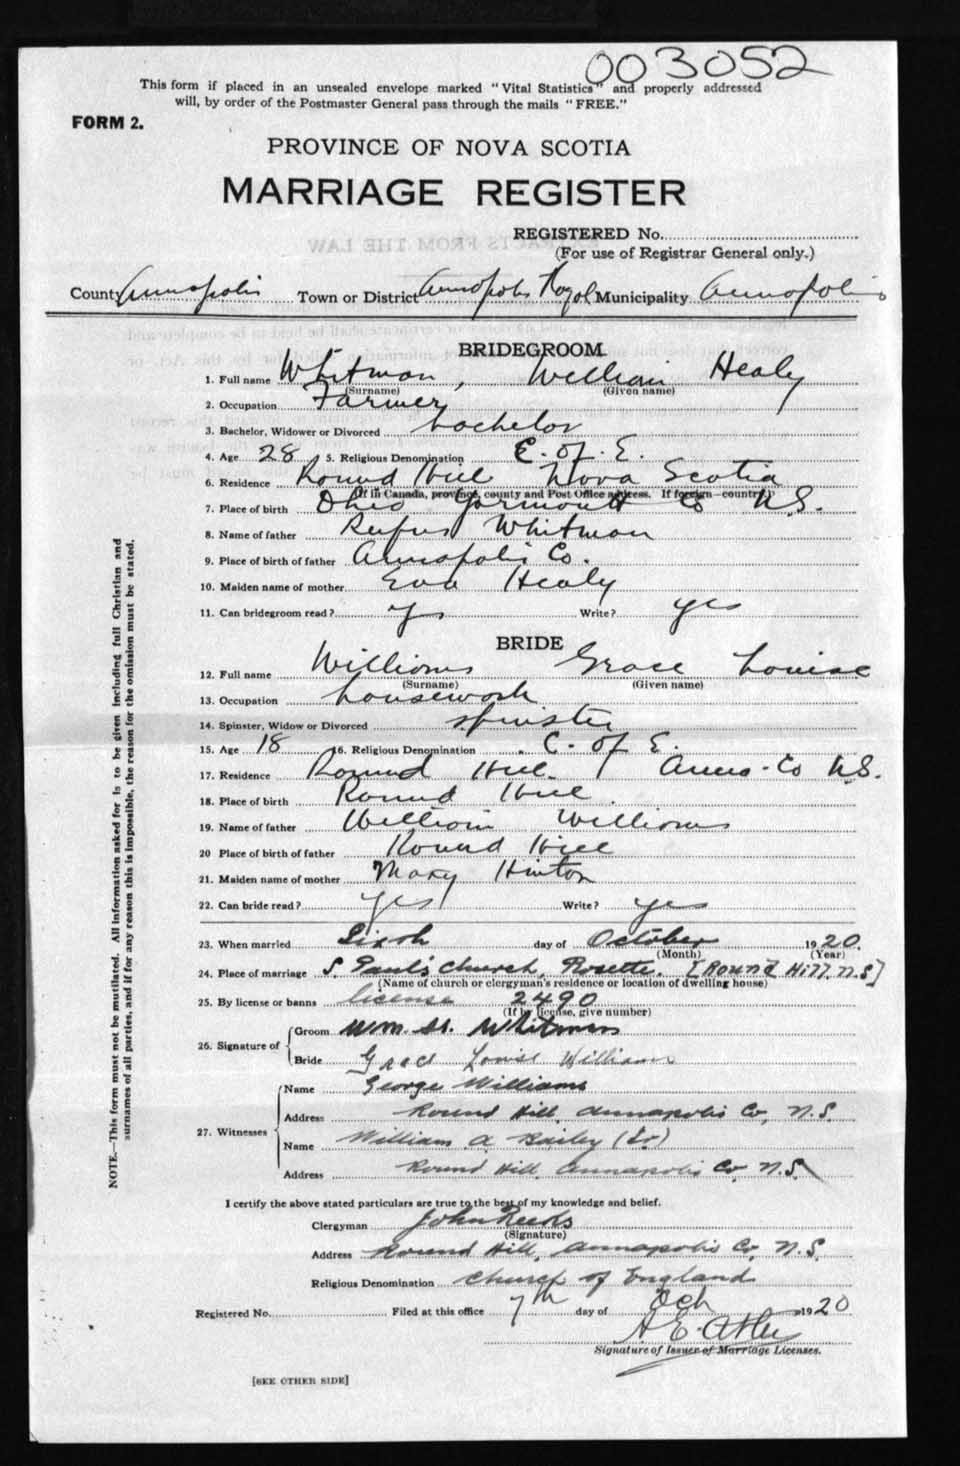 003052
This form if placed in an unsealed envelope marked "Vital Statistics" and properly addressed
will, by order of the Postmaster General pass through the mails "FREE."
FORM 2.
PROVINCE OF NOVA SCOTIA
MARRIAGE REGISTER
REGISTERED No.
(For use of Registrar General only.)
County Annapolis Town or District Annapolis Royal Municipality Annapolis
BRIDEGROOM
1. Full name Whitman, William Healy
(Surname) (Given name)
2. Occupation Farmer
3. Bachelor, Widower or Divorced bachelor
4. Age 28 5. Religious Denomination C. of E.
6. Residence Round Hill Nova Scotia
(If in Canada, province, county and Post Office address. If foreign—country.)
7. Place of birth Ohio Yarmouth Co N.S.
8. Name of father Rufus Whitman
9. Place of birth of father Annapolis Co.
10. Maiden name of mother Eva Healy
11. Can bridegroom read? yes Write? yes
BRIDE
12. Full name Williams Grace Louise
(Surname) (Given name)
13. Occupation housework
14. Spinster, Widow or Divorced spinster
15. Age 18 16. Religious Denomination C. of E.
17. Residence Round Hill. Anna. Co N.S.
18. Place of birth Round Hill
19. Name of father William Williams
20 Place of birth of father Round Hill
21. Maiden name of mother Mary Hinton
22. Can bride read? yes Write? yes
23. When married Sixth day of October 1920.
(Month) (Year)
24. Place of marriage S. Paul's Church, Rosette. [Round Hill, N.S]
(Name of church or clergyman's residence or location of dwelling house)
25. By license or banns license 2490
(If by license, give number)
26. Signature of
Groom Wm. H. Whitman
Bride Grace Louise William
27. Witnesses
Name George Williams
Address Round Hill, Annapolis Co, N.S.
Name William A. Bailey (Sr)
Address Round Hill, Annapolis Co, N.S.
I certify the above stated particulars are true to the best of my knowledge and belief.
Clergyman John Reeks
(Signature)
Address Round Hill, Annapolis Co, N.S.
Religious Denomination Church of England
Registered No. Filed at this office 7th day of Oct 1920
A E. Atlee
Signature of Issuer of Marriage Licenses.
[SEE OTHER SIDE]
NOTE.—This form must not be mutilated. All information asked for is to be given including full Christian and
surnames of all parties, and if for any reason this is impossible, the reason for the omission must be stated.